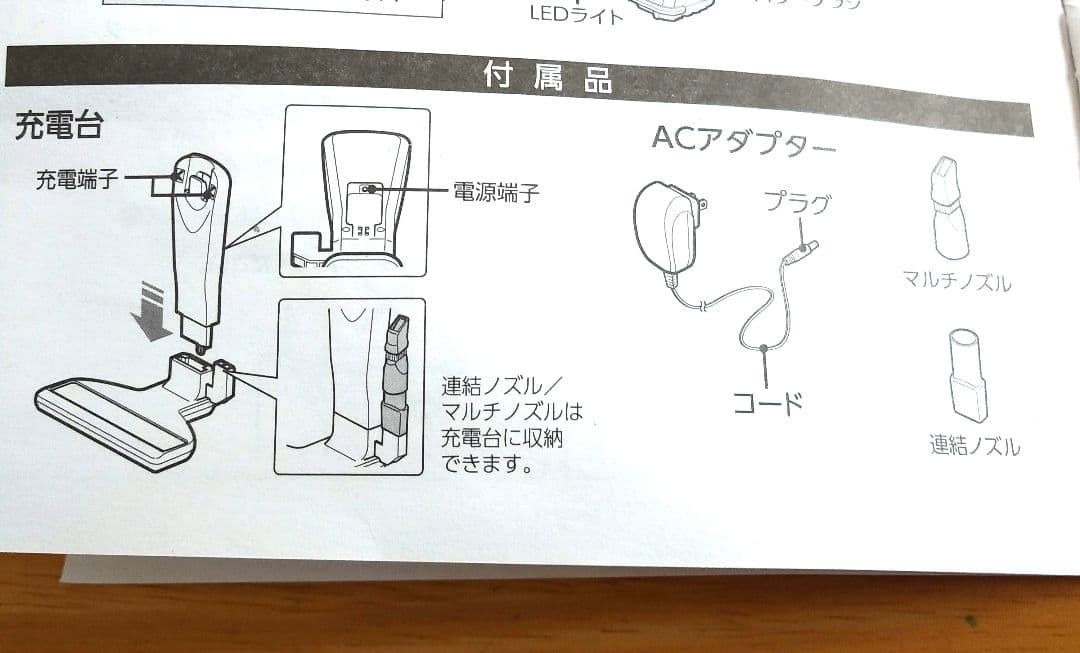 LEDライト
付属品
充電台
充電端子
電源端子
連結ノズル／
マルチノズルは
充電台に収納
できます。
ACアダプター
プラグ
コード
マルチノズル
連結ノズル